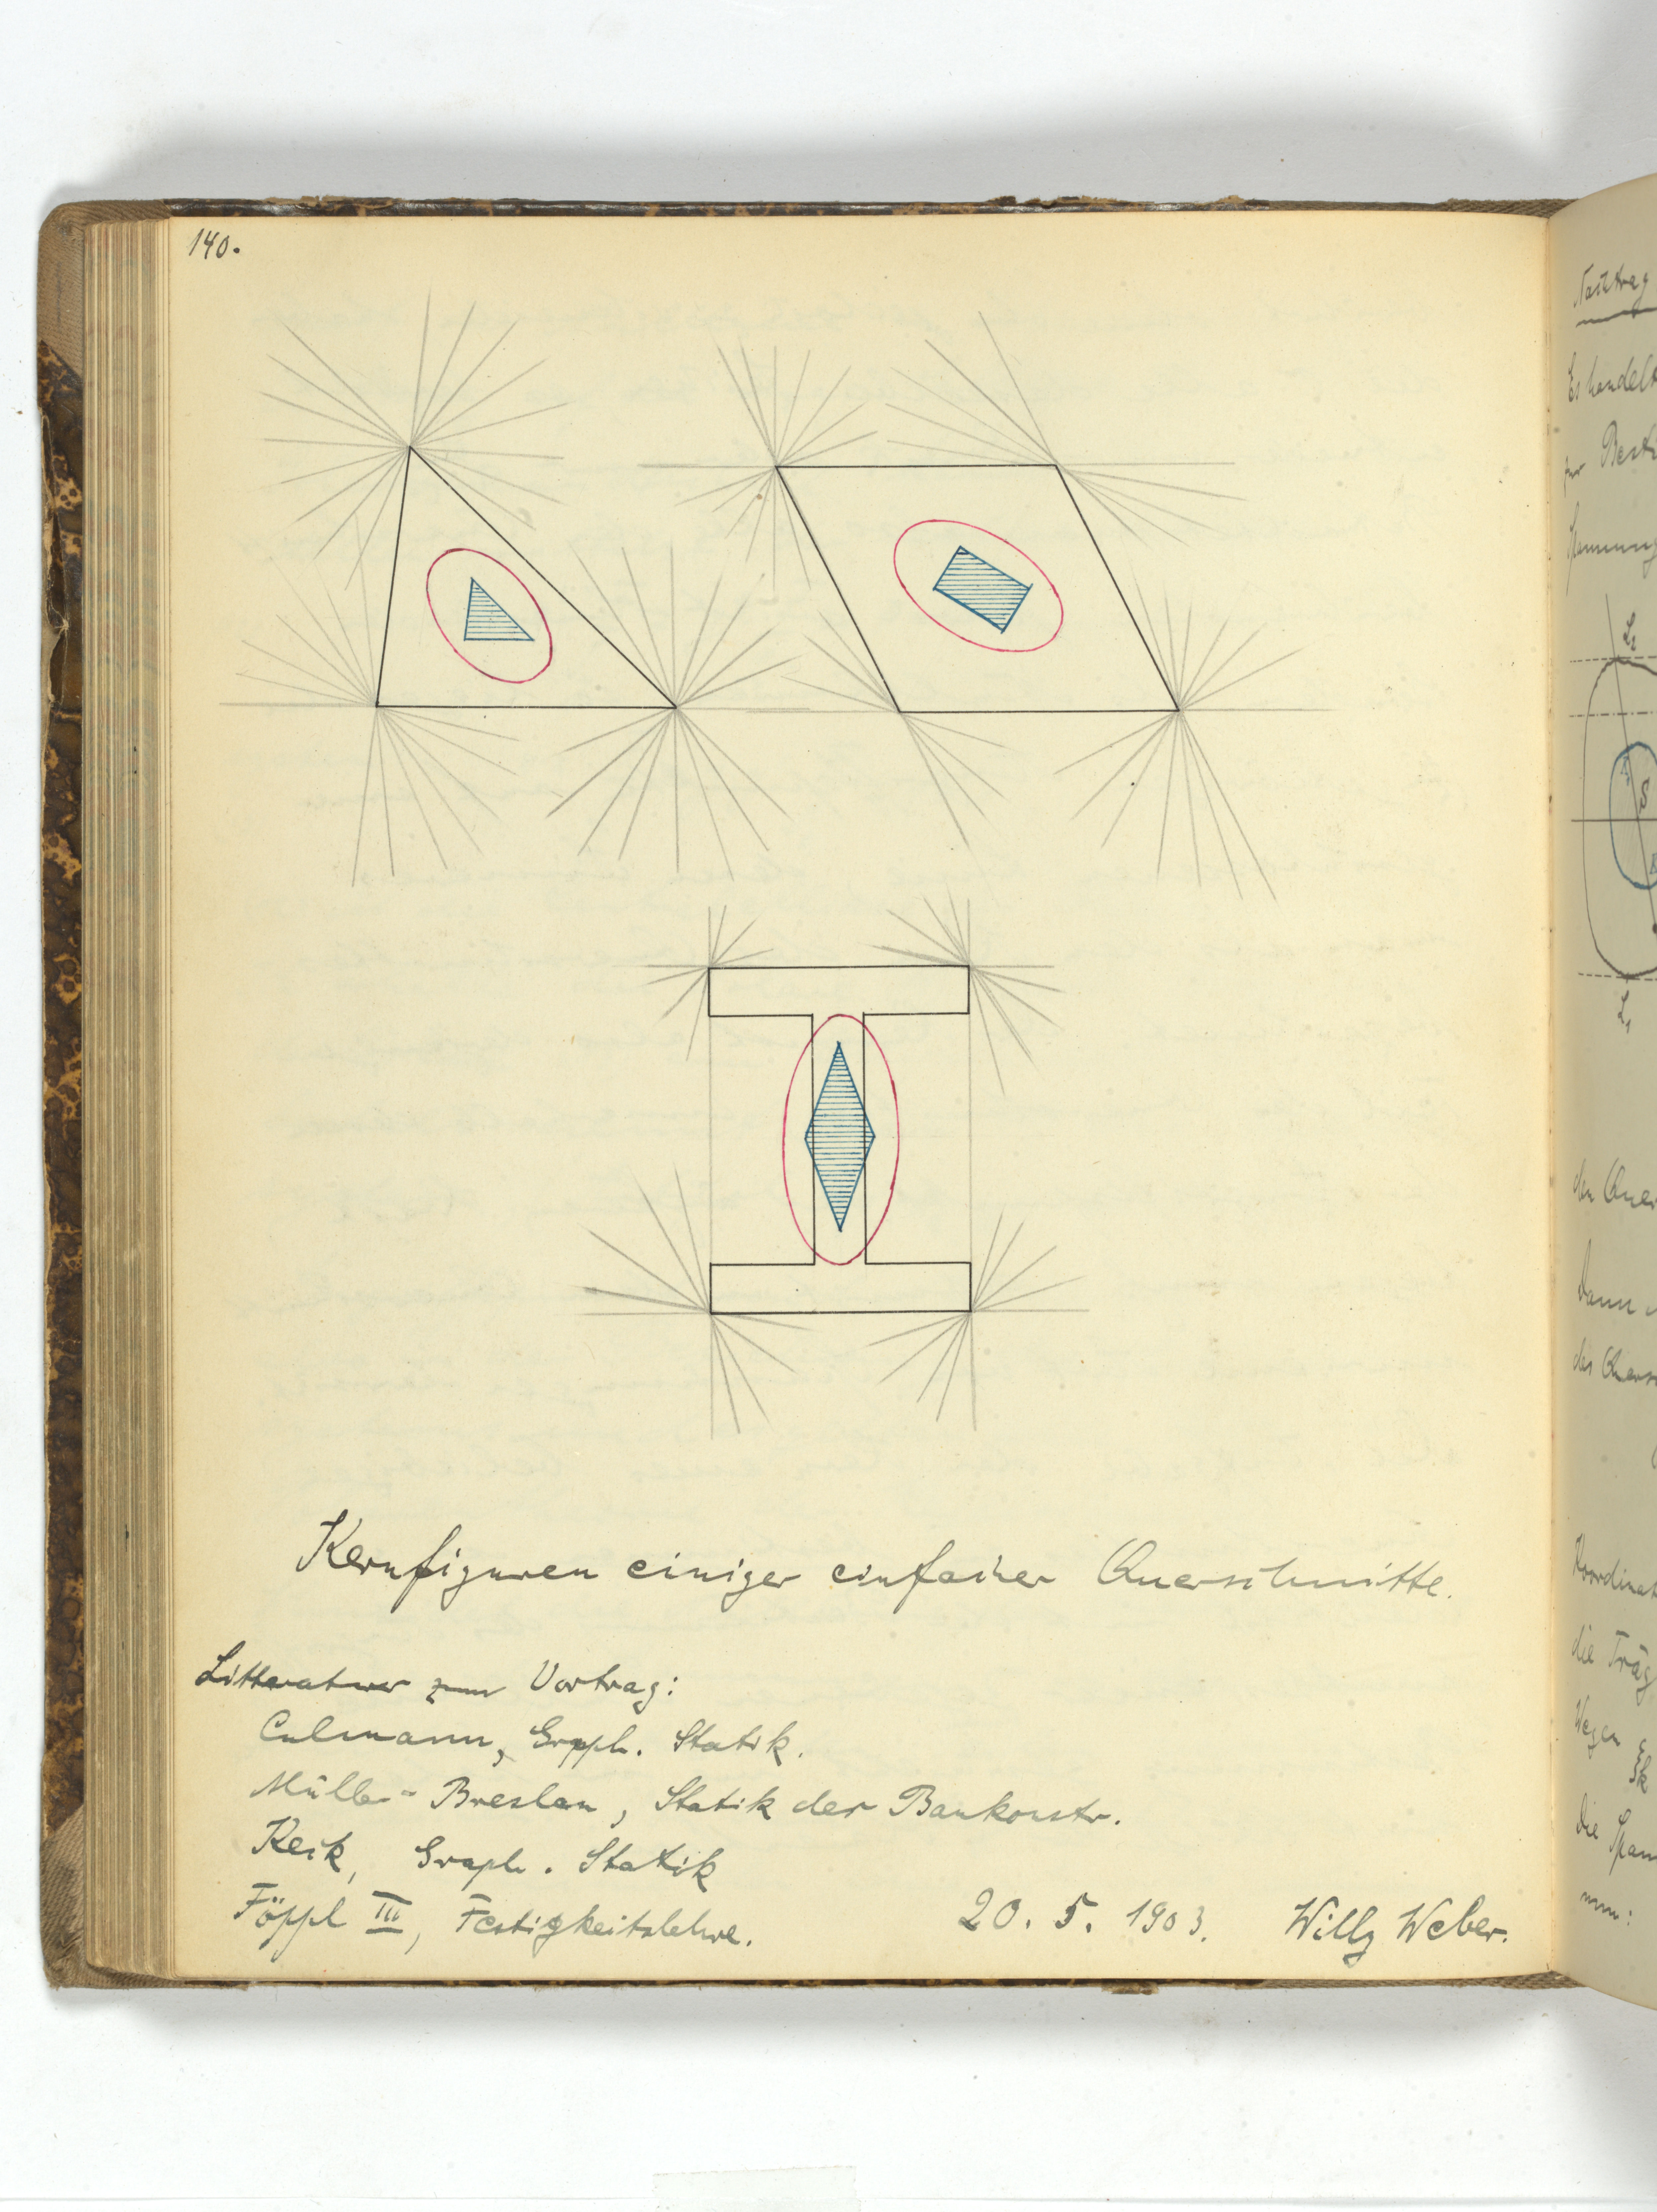 140.
Kernfiguren einiger einfacher Querschnitte.
Litteratur zum Vortrag:
Culmann, Graph. Statik.
Müller-Breslau, Statik der Baukonstr.
Keck, Graph. Statik
Föppl III, Festigkeitslehre.
20. 5. 1903. Willy Weber.
Nachtrag
Es handelt
zur
L₂
S
L₁
den Quer
Dann
des Quers
Koordinat
die Träg
Wegen
die Span